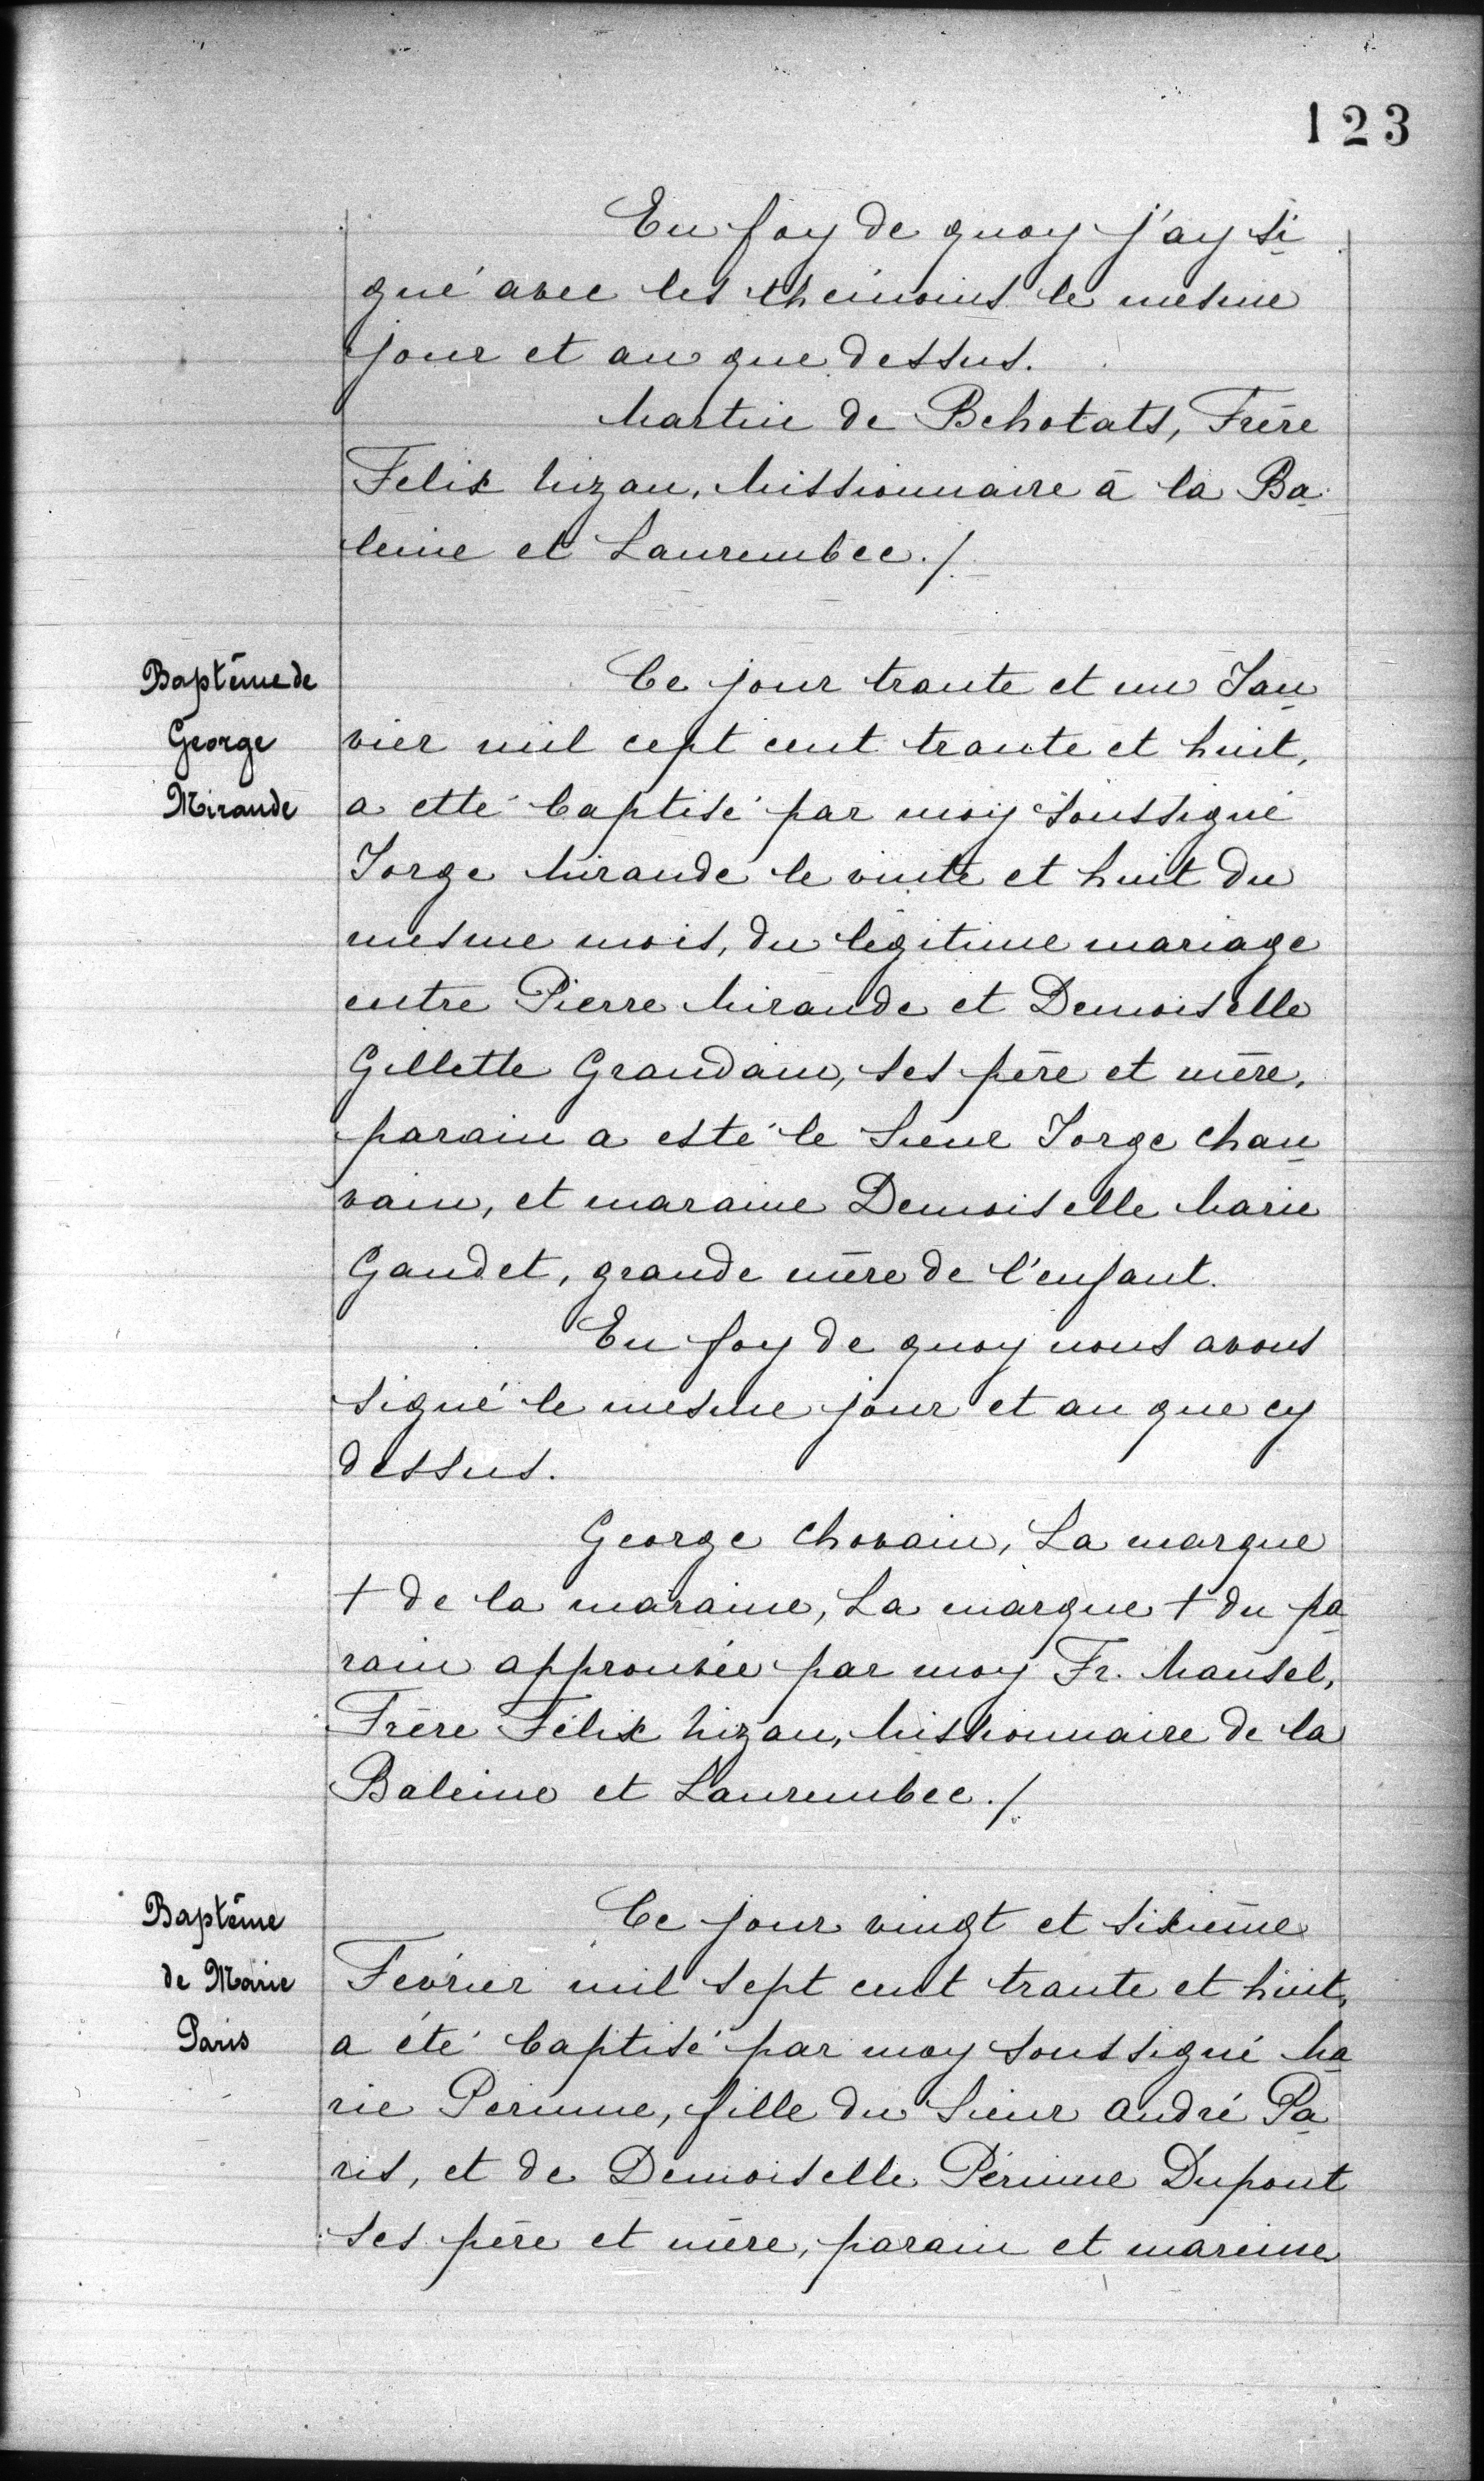 123
En foy de quoy j'ay si
gné avec les theimoins le mesme
jour et an que dessus.
Martin de Behotats, Frère
Felix Nizan, Missionnaire à la Ba
leine et Laurembec./.
Baptême de
George
Mirande
Ce jour trante et un Jan
vier mil cept cent trante et huit,
a etté baptisé par moy soussigné
Jorge Mirande le vinte et huit du
mesme mois, du légitime mariage
entre Pierre Mirande et Demoiselle
Gillette Grandain, ses père et mère,
parain a esté le Sieur Jorge Chau
vain, et maraine Demoiselle Marie
Gaudet, grande mère de l'enfant.
En foy de quoy nous avons
signé le mesme jour et an que cy
dessus.
George Chovain, La marque
+ de la maraine, La marque + du pa
rain approuvée par moy Fr. Mansel,
Frère Félix Nizan, Missionnaire de la
Baleine et Laurembec./.
Baptême
de Marie
Paris
Ce jour vingt et sixième
Février mil sept cent trante et huit,
a été baptisé par moy soussigné Ma
rie Perinne, fille du Sieur André Pa
ris, et de Demoiselle Périnne Dupont
ses père et mère, parain et mareine